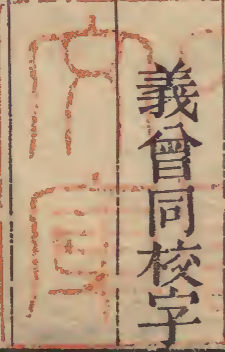 義曾同校字